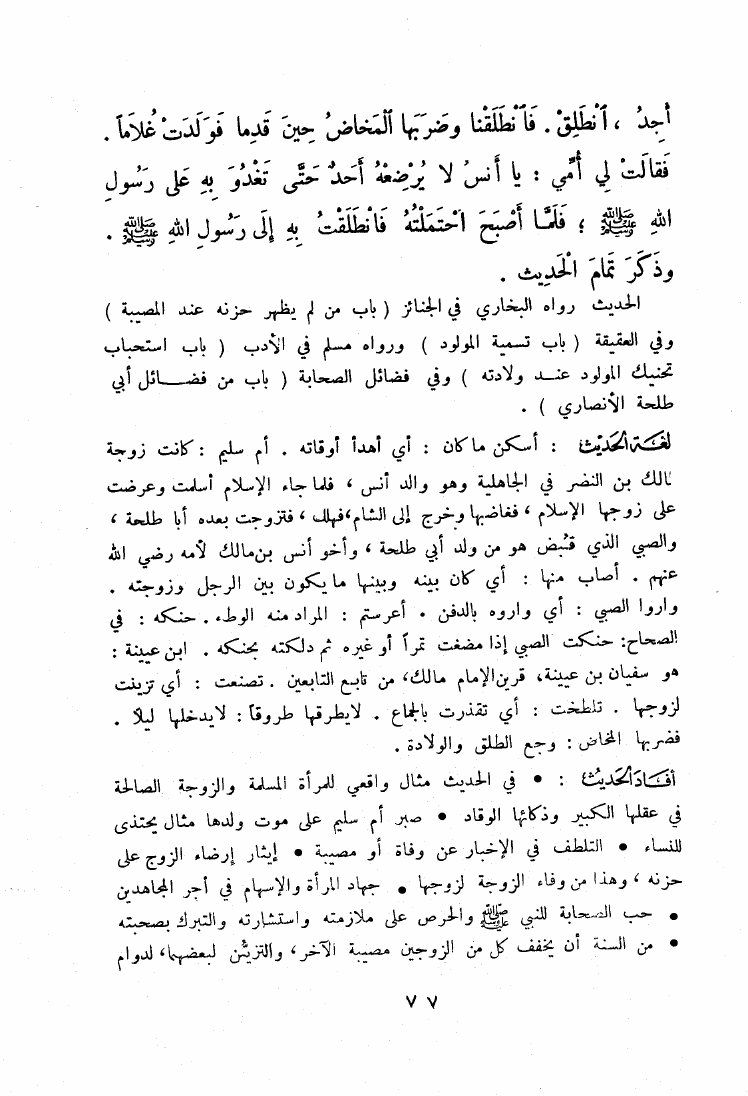 أَجِدُ ، ٱنْطَلِقْ . فَٱنْطَلَقْنا وضَرَبَها ٱلْمَخاضُ حِينَ قَدِما فَوَلَدَتْ غُلاماً .
فَقالَتْ لِي أُمِّي : يا أَنسُ لا يُرْضِعْهُ أَحَدٌ حَتَّى تَغْدُوَ بِهِ عَلَى رَسُولِ
اللهِ ﷺ ؛ فَلَمَّا أَصْبَحَ احْتَمَلْتُهُ فَانْطَلَقْتُ بِهِ إِلَى رَسُولِ اللهِ ﷺ .
وذَكَرَ تَمامَ الْحَدِيث .
الحديث رواه البخاري في الجنائز ( باب من لم يظهر حزنه عند المصيبة )
وفي العقيقة ( باب تسمية المولود ) ورواه مسلم في الأدب ( باب استحباب
تحنيك المولود عنـد ولادته ) وفي فضائل الصحابة ( باب من فضـائل أبي
طلحة الأنصاري ) .
لغة الحديث : أسكن ما كان : أي أهدأ أوقاته . أم سليم : كانت زوجة
مالك بن النضر في الجاهلية وهو والد أنس ، فلما جاء الإسلام أسلمت وعرضت
على زوجها الإسلام ، فغاضبها وخرج إلى الشام، فهلك ، فتزوجت بعده أبا طلحة ،
والصبي الذي قُبض هو من ولد أبي طلحة ، وأخو أنس بن مالك لأمه رضي الله
عنهم . أصاب منها : أي كان بينه وبينها ما يكون بين الرجل وزوجته .
واروا الصبي : أي واروه بالدفن . أعرستم : المراد منه الوطء . حنكه : في
الصحاح: حنكت الصبي إذا مضغت تمراً أو غيره ثم دلكته بحنكه . ابن عيينة :
هو سفيان بن عيينة، قرين الإمام مالك، من تابع التابعين . تصنعت : أي تزينت
لزوجها . تلطخت : أي تقذرت بالجماع . لا يطرقها طروقاً : لا يدخلها ليلاً .
فضربها المخاض : وجع الطلق والولادة .
أفاد الحديث : • في الحديث مثال واقعي للمرأة المسلمة والزوجة الصالحة
في عقلها الكبير وذكائها الوقاد • صبر أم سليم على موت ولدها مثال يحتذى
للنساء • التلطف في الإخبار عن وفاة أو مصيبة • إيثار إرضاء الزوج على
حزنه ، وهذا من وفاء الزوجة لزوجها • جهاد المرأة والإسهام في أجر المجاهدين
• حب الصحابة للنبي ﷺ والحرص على ملازمته واستشارته والتبرك بصحبته
• من السنة أن يخفف كل من الزوجين مصيبة الآخر، والتزيُّن لبعضهما، لدوام
٧٧